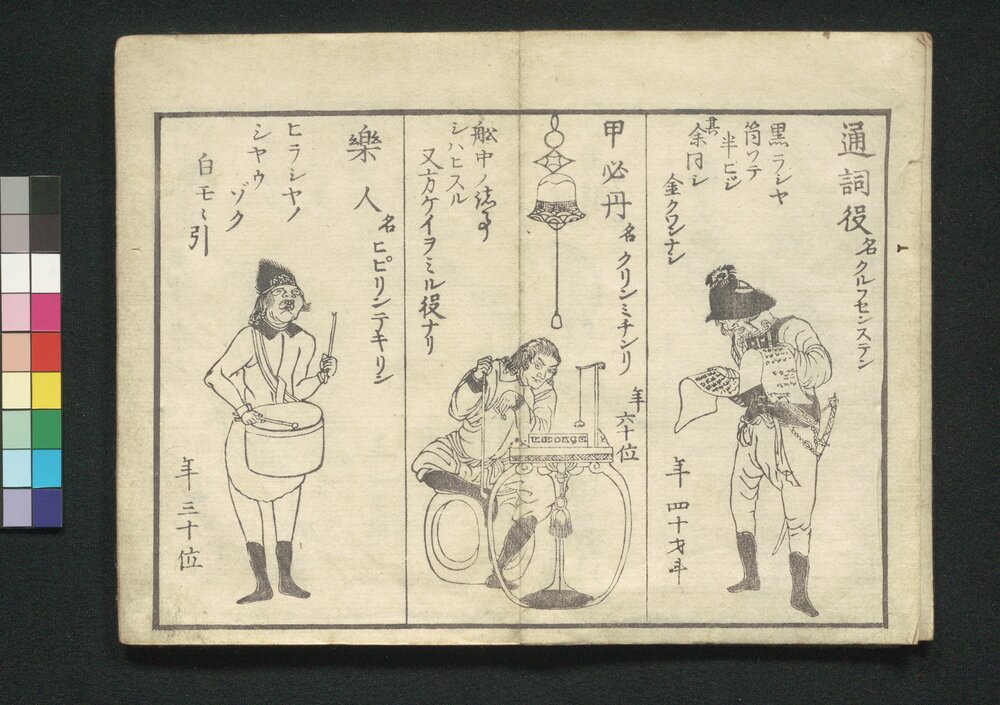 通詞役
名クルフセンステン
黒ラシヤ
筒ソテ
半ヒジ
其余同シ
金クワンナシ
年四十才斗
甲必丹
名クリンミチンリ
年六十位
舩中ノ諸事
シハヒスル
又方ケイヲミル役ナリ
樂人
名ヒピリンテキリシ
ヒラシヤノ
シヤウゾク
白モヽ引
年三十位